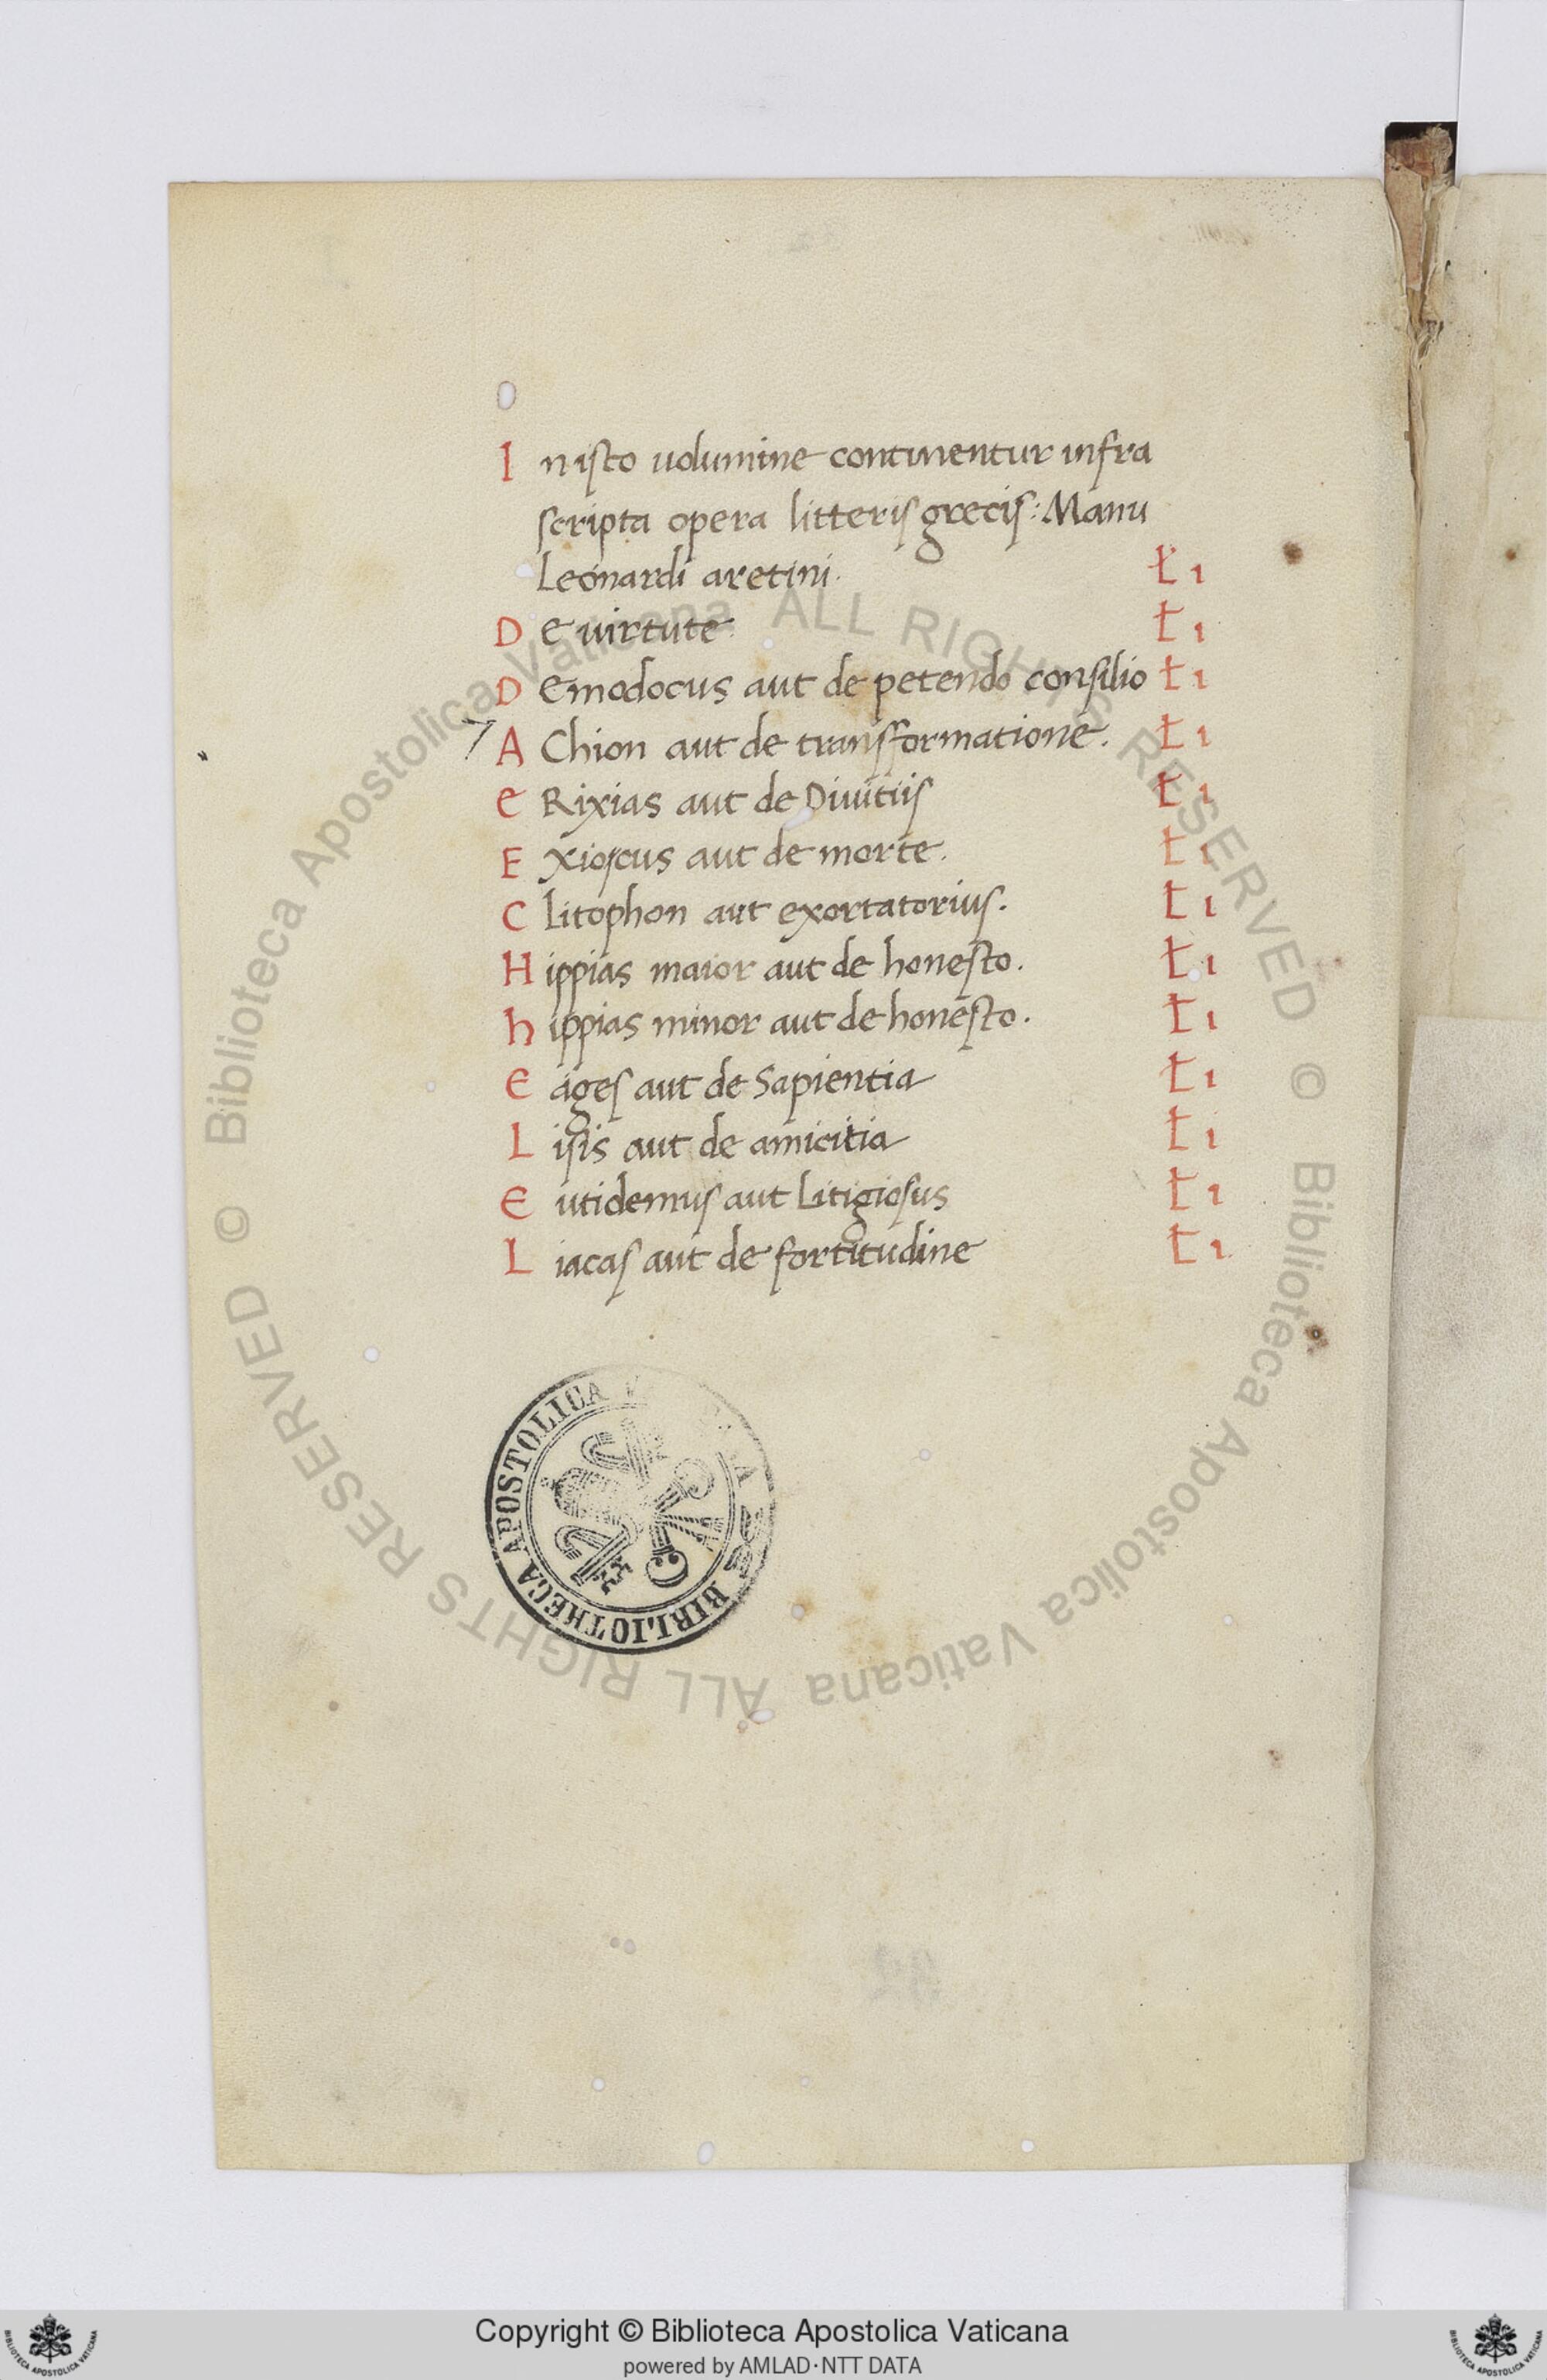 In isto uolumine continentur infra
scripta opera litteris grecis: Manu
Leonardi aretini. Ł 1
De uirtute. Ł 1
Demodocus aut de petendo consilio Ł 1
AChion aut de transformatione. Ł 1
eRixias aut de Diuitiis Ł 1
Exioscus aut de morte. Ł 1
Clitophon aut exortatorius. Ł 1
Hippias maior aut de honesto. Ł 1
hippias minor aut de honesto. Ł 1
eages aut de Sapientia Ł 1
Lisis aut de amicitia Ł 1
eutidemus aut Litigiosus Ł 1
Liacas aut de fortitudine Ł 1
BIBLIOTHECA APOSTOLICA
© Biblioteca Apostolica Vaticana ALL RIGHTS RESERVED © Biblioteca Apostolica Vaticana ALL RIGHTS RESERVED
Copyright © Biblioteca Apostolica Vaticana
powered by AMLAD·NTT DATA